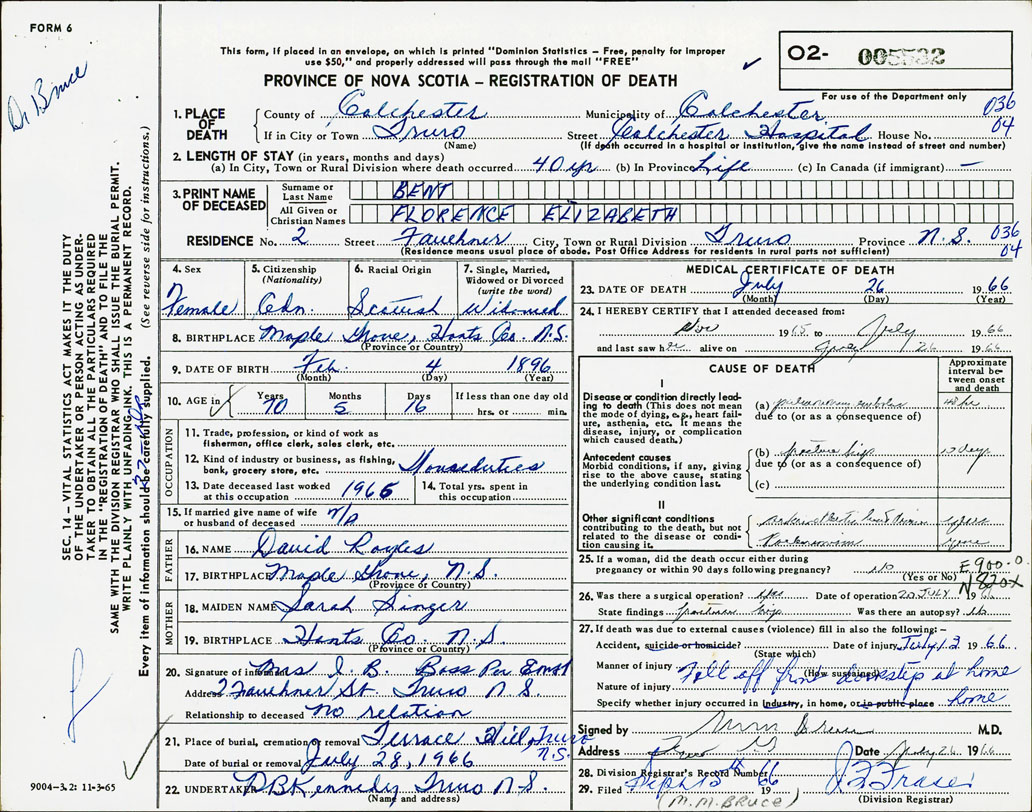 FORM 6
Dr Bruce
This form, if placed in an envelope, on which is printed "Dominion Statistics – Free, penalty for improper
use $50," and properly addressed will pass through the mail "FREE"
PROVINCE OF NOVA SCOTIA – REGISTRATION OF DEATH
O2- 005532
For use of the Department only
036
04
1. PLACE OF DEATH County of Colchester Municipality of Colchester
If in City or Town Truro Street Colchester Hospital House No.
(Name) (If death occurred in a hospital or institution, give the name instead of street and number)
2. LENGTH OF STAY (in years, months and days)
(a) In City, Town or Rural Division where death occurred 40 yr (b) In Province Life (c) In Canada (if immigrant) —
3. PRINT NAME OF DECEASED Surname or Last Name BENT
All Given or Christian Names FLORENCE ELIZABETH
RESIDENCE No. 2 Street Faulkner City, Town or Rural Division Truro Province N.S. 036
04
(Residence means usual place of abode. Post Office Address for residents in rural parts not sufficient)
4. Sex Female
5. Citizenship (Nationality) Cdn.
6. Racial Origin Scottish
7. Single, Married, Widowed or Divorced (write the word) Widowed
8. BIRTHPLACE Maple Grove, Hants Co. N.S.
(Province or Country)
9. DATE OF BIRTH Feb. 4 1896
(Month) (Day) (Year)
10. AGE in Years 70 Months 5 Days 16 If less than one day old hrs. or min.
OCCUPATION
11. Trade, profession, or kind of work as fisherman, office clerk, sales clerk, etc.
12. Kind of industry or business, as fishing, bank, grocery store, etc. Houseduties
13. Date deceased last worked at this occupation 1965
14. Total yrs. spent in this occupation
15. If married give name of wife or husband of deceased N/A
FATHER
16. NAME David Royles
17. BIRTHPLACE Maple Grove, N.S.
(Province or Country)
MOTHER
18. MAIDEN NAME Sarah Singer
19. BIRTHPLACE Hants Co. N.S.
(Province or Country)
20. Signature of informant Mrs I. B. Boss Per
Address 2 Faulkner St Truro N.S.
Relationship to deceased no relation
21. Place of burial, cremation or removal Terrace Hill, Truro N.S.
Date of burial or removal July 28, 1966
22. UNDERTAKER DB Kennedy Truro N.S.
(Name and address)
MEDICAL CERTIFICATE OF DEATH
23. DATE OF DEATH July 26 1966
(Month) (Day) (Year)
24. I HEREBY CERTIFY that I attended deceased from:
Nov 1965 to July 1966
and last saw her alive on July 26 1966
CAUSE OF DEATH
Approximate interval between onset and death
I
Disease or condition directly leading to death (This does not mean the mode of dying, e.g., heart failure, asthenia, etc. It means the disease, injury, or complication which caused death.)
(a) pulmonary embolus
due to (or as a consequence of)
Antecedent causes
Morbid conditions, if any, giving rise to the above cause, stating the underlying condition last.
(b) fracture hip 10 days
due to (or as a consequence of)
(c)
II
Other significant conditions contributing to the death, but not related to the disease or condition causing it.
Parkinsonism years
25. If a woman, did the death occur either during pregnancy or within 90 days following pregnancy? No
(Yes or No)
E900.0
N820X
26. Was there a surgical operation? yes Date of operation 20 JULY 1966
State findings fracture hip Was there an autopsy? no
27. If death was due to external causes (violence) fill in also the following:–
Accident, suicide or homicide? Date of injury July 13 1966
(State which)
Manner of injury Fell off front doorstep at home
(How sustained)
Nature of injury
Specify whether injury occurred in industry, in home, or in public place home
Signed by Bruce M.D.
Address Truro Date July 26 1966
28. Division Registrar's Record Number
29. Filed 1966 J F Fraser
(M. M. BRUCE) (Division Registrar)
SEC. 14 – VITAL STATISTICS ACT MAKES IT THE DUTY
OF THE UNDERTAKER OR PERSON ACTING AS UNDER-
TAKER TO OBTAIN ALL THE PARTICULARS REQUIRED
IN THE "REGISTRATION OF DEATH" AND TO FILE THE
SAME WITH THE DIVISION REGISTRAR WHO SHALL ISSUE THE BURIAL PERMIT.
WRITE PLAINLY WITH UNFADING INK. THIS IS A PERMANENT RECORD.
Every item of information should be carefully supplied. (See reverse side for instructions.)
9004-3.2: 11-3-65